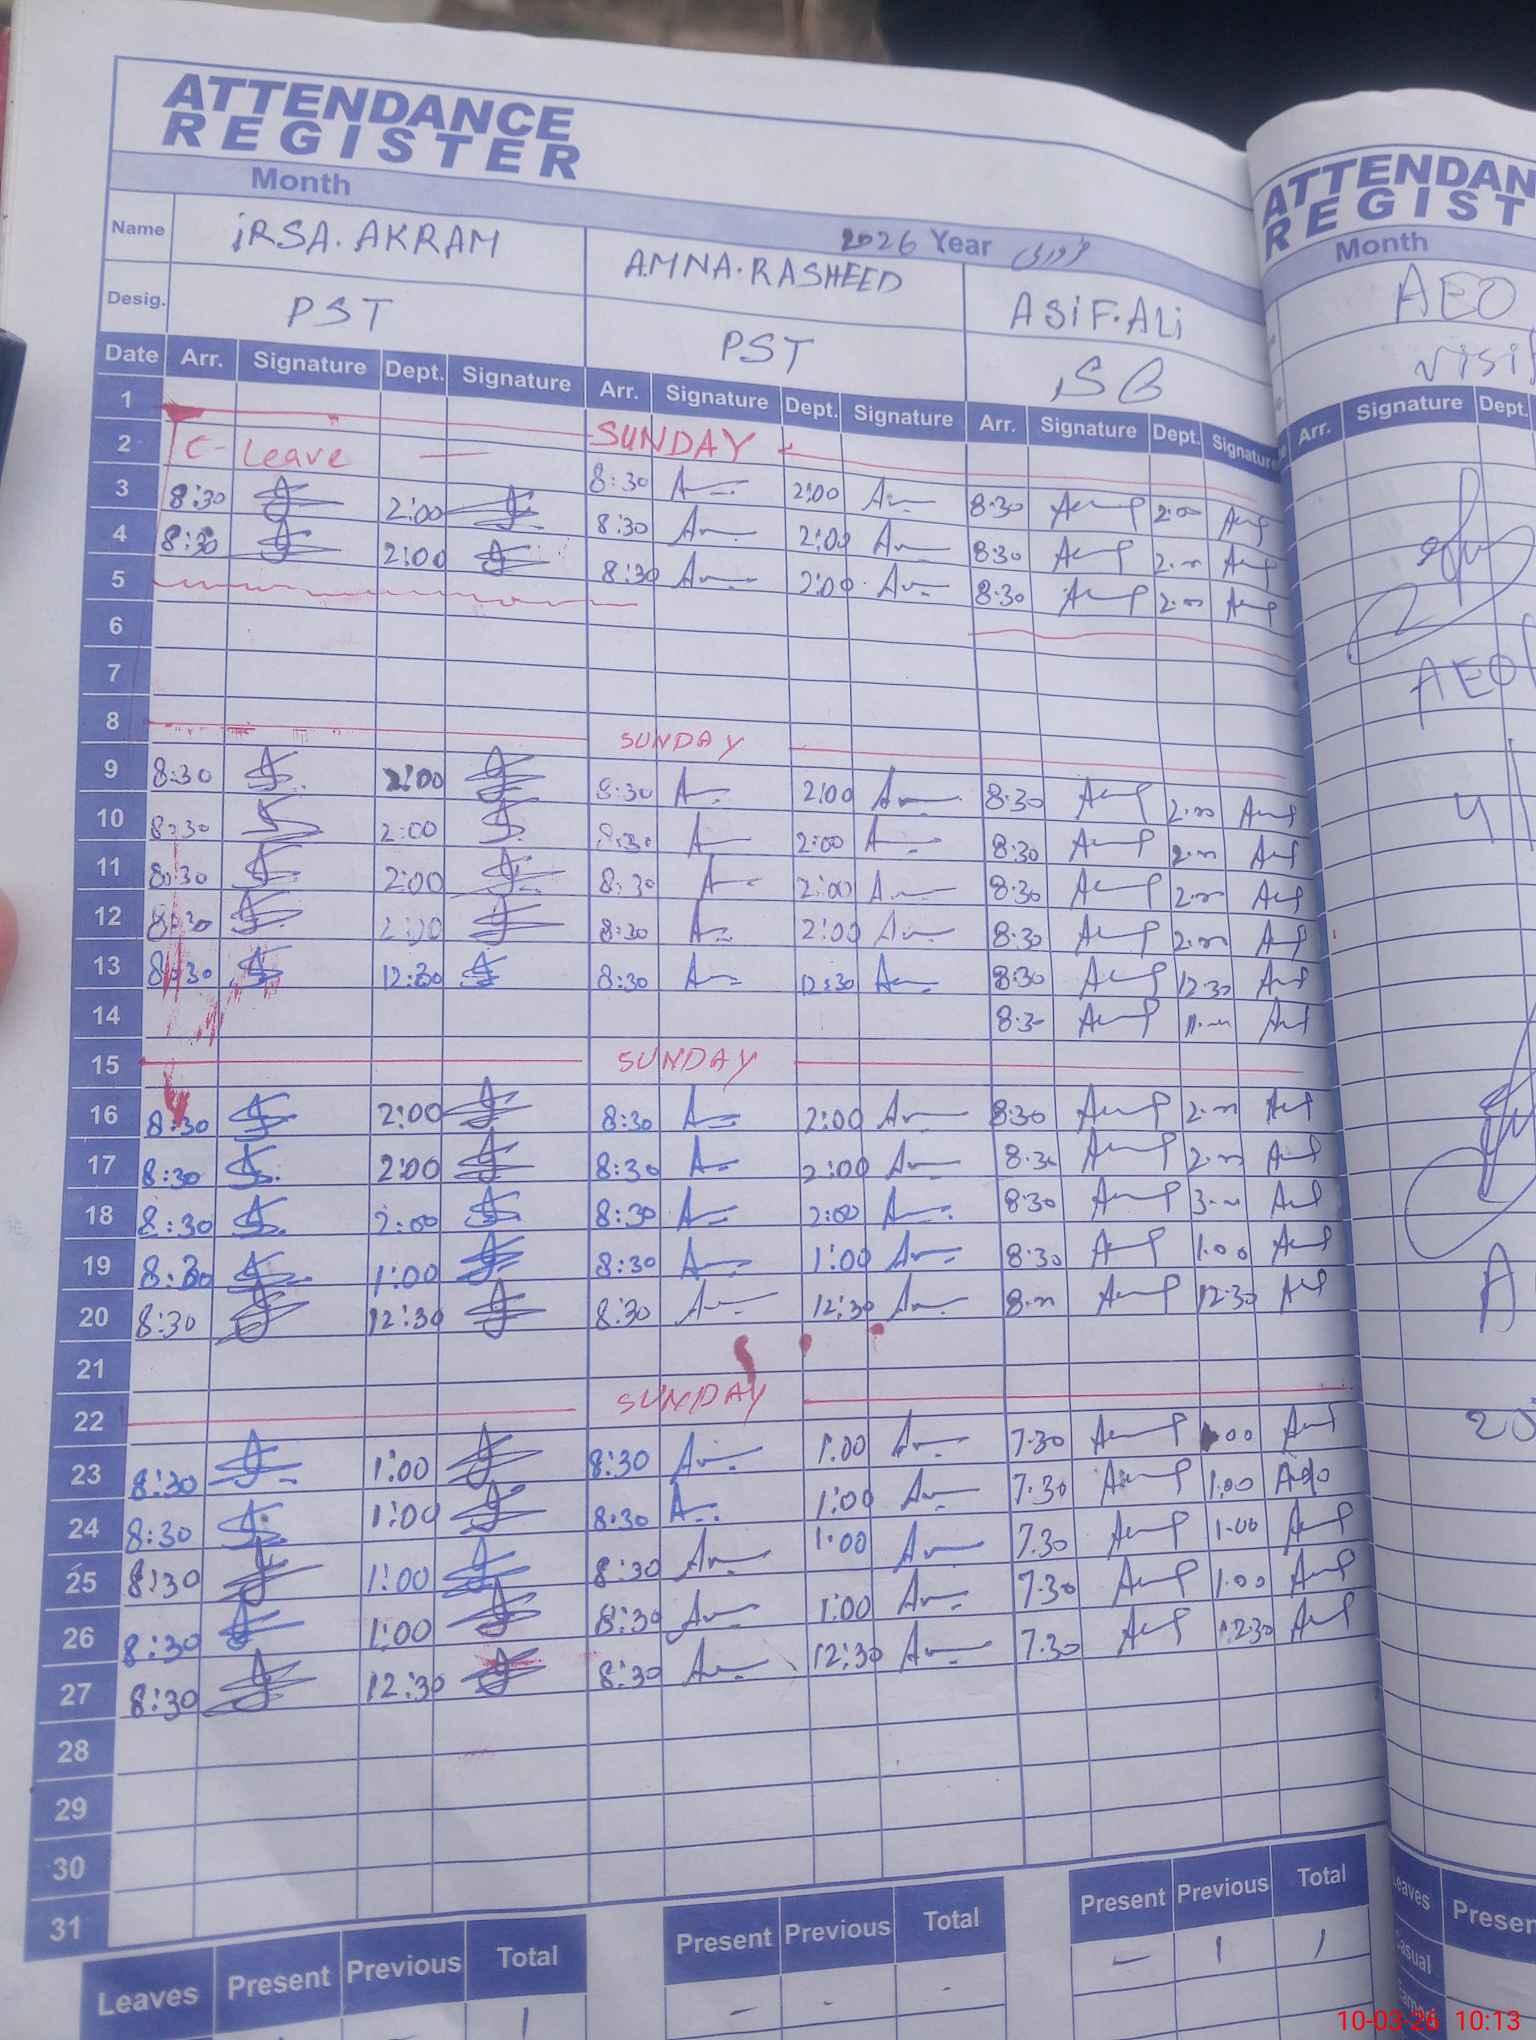 ATTENDANCE
REGISTER
Month 2026 Year فروری
Name IRSA.AKRAM AMNA.RASHEED ASIF.ALI
Desig. PST PST
Date Arr. Signature Dept. Signature Arr. Signature Dept. Signature Arr. Signature Dept. Signature
1 SUNDAY
2 C-Leave 8:30 2:00 8:30
3 8:30 2:00 8:30 2:00 8:30
4 8:30 2:00 8:30 2:00 8:30
5
6
7
8 SUNDAY
9 8:30 2:00 8:30 2:00 8:30
10 8:30 2:00 8:30 2:00 8:30
11 8:30 2:00 8:30 2:00 8:30
12 8:30 2:00 8:30 2:00 8:30
13 8:30 12:30 8:30 12:30 8:30 12:30
14
15 SUNDAY
16 8:30 2:00 8:30 2:00 8:30
17 8:30 2:00 8:30 2:00
18 8:30 2:00 8:30 2:00 8:30
19 8:30 1:00 8:30 1:00 8:30 1:00
20 8:30 12:30 8:30 12:30 12:30
21
22 SUNDAY
23 8:30 1:00 8:30 1:00 7:30
24 8:30 1:00 8:30 1:00 7:30 1:00
25 8:30 1:00 8:30 1:00 7:30 1:00
26 8:30 1:00 8:30 1:00 7:30 1:00
27 8:30 12:30 8:30 12:30 7:30 12:30
28
29
30
31
Leaves Present Previous Total Present Previous Total Present Previous Total
1 - - - - 1 1
ATTENDAN
REGIST
Month
AEO
Arr. Signature Dept.
AEO
20
Leaves Presen
10-03-26 10:13